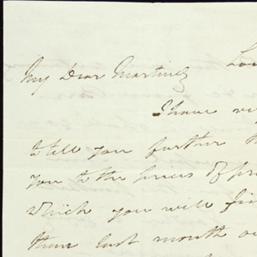 My Dear Martinez
I have
to tell you further
you to the prices of
which you will
than last month